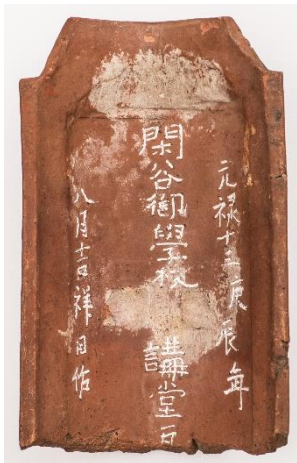 元禄十三庚辰年
閑谷御學校 講堂瓦
八月吉祥日作